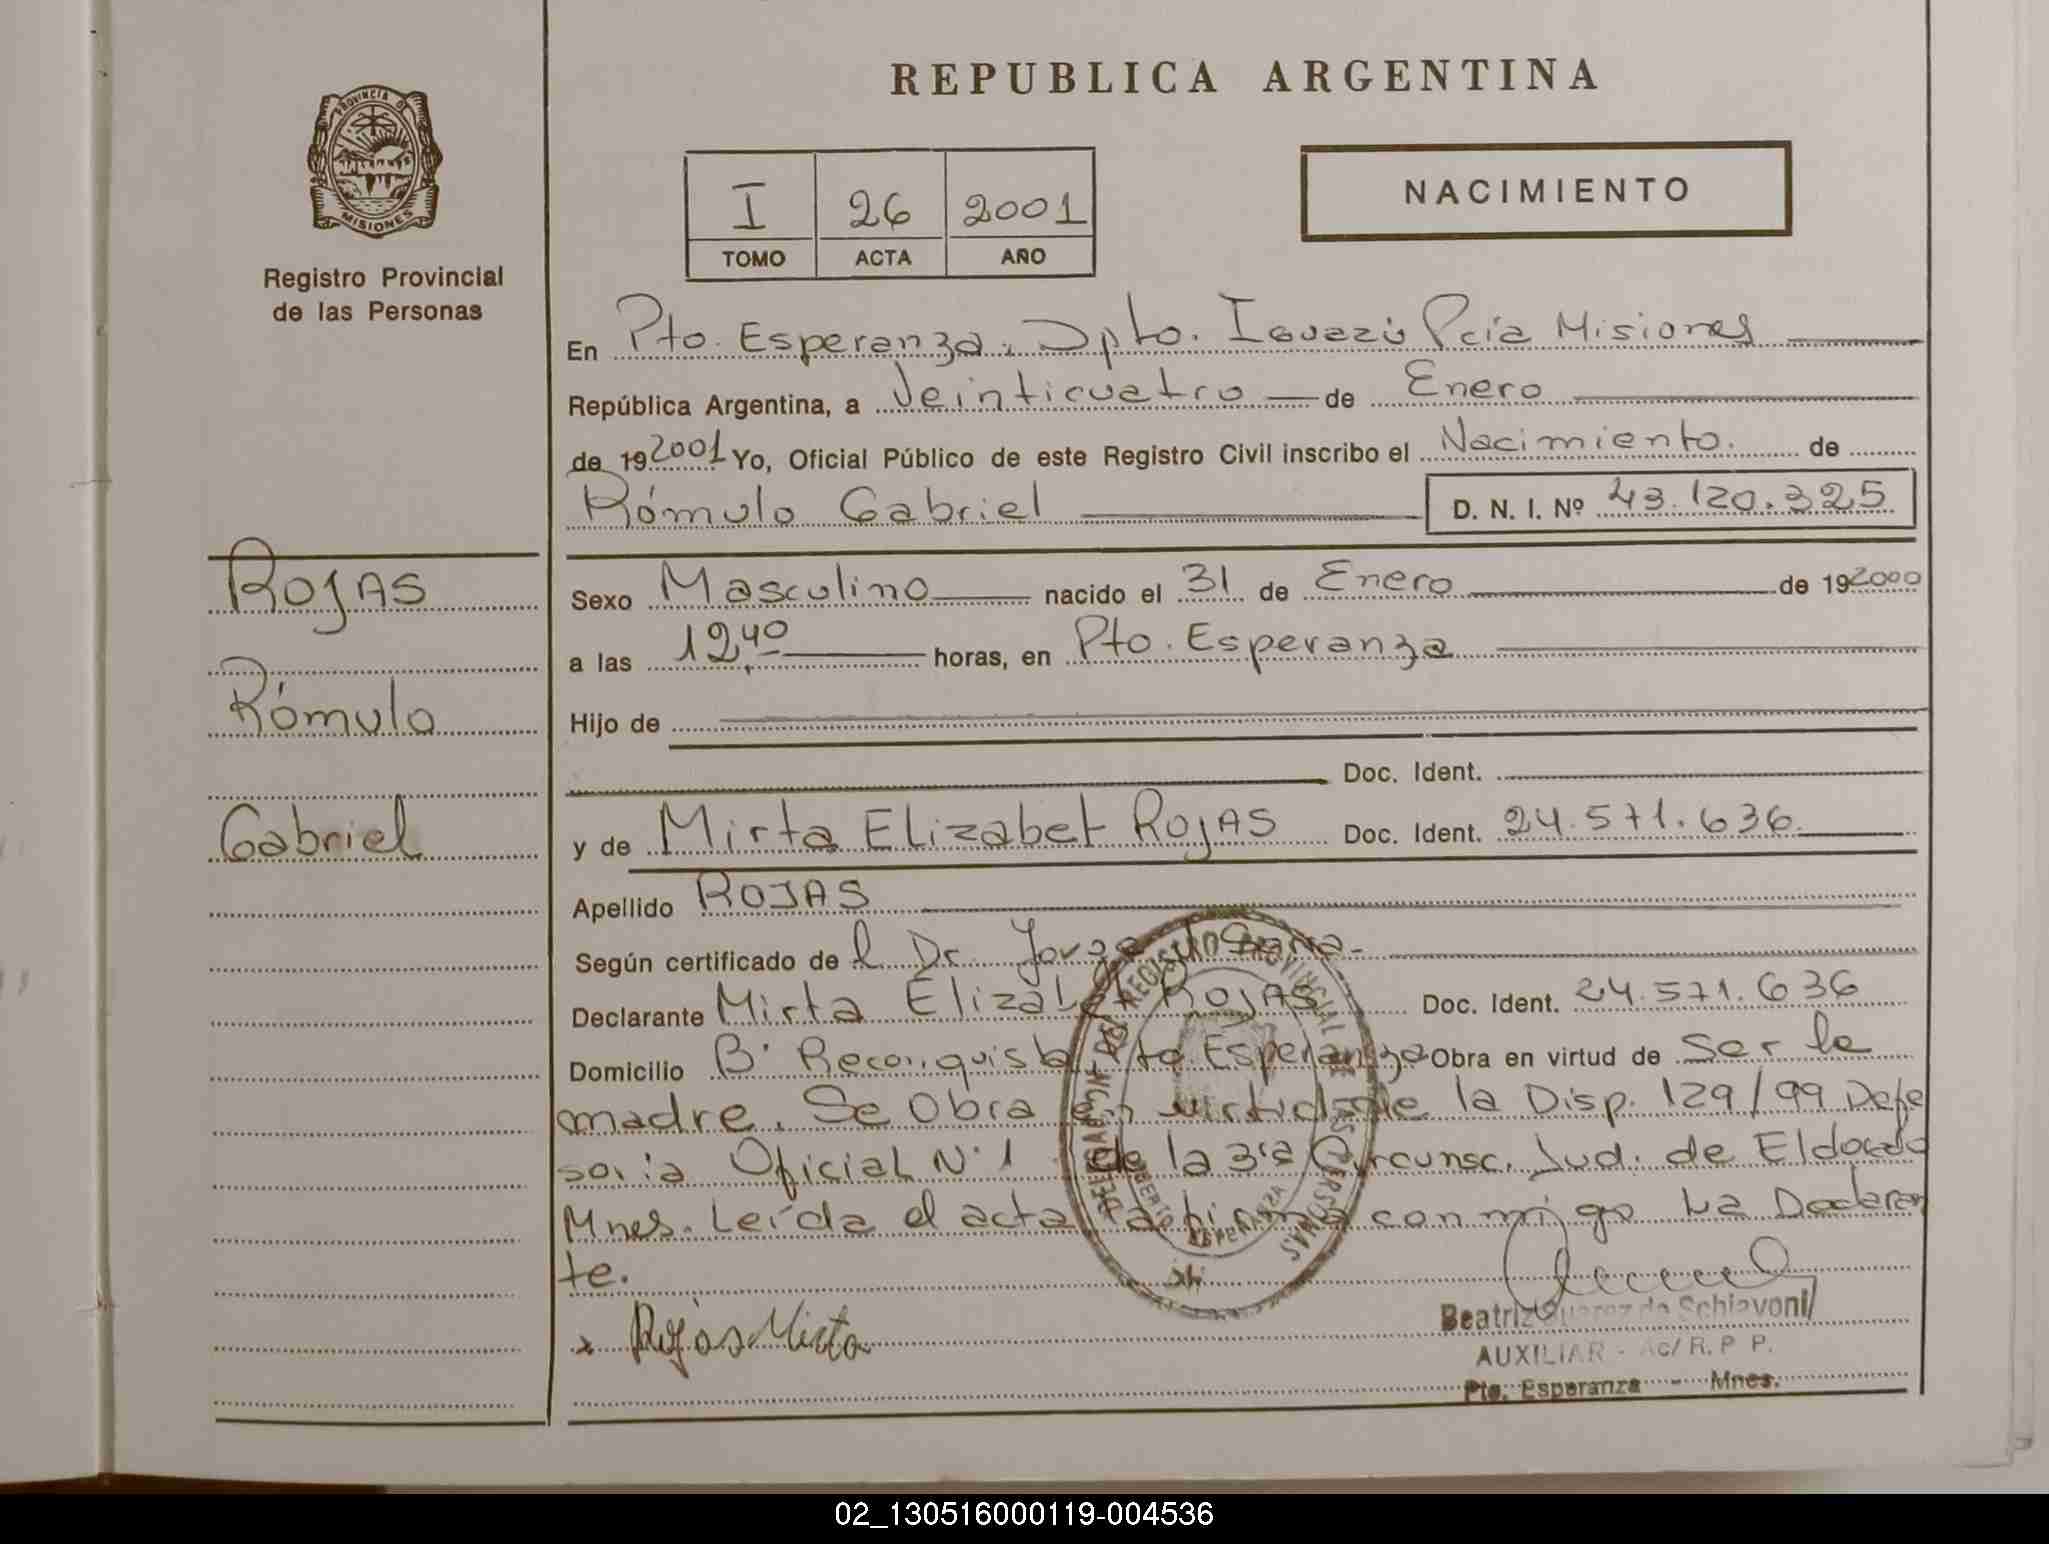 REPUBLICA ARGENTINA
PROVINCIA D MISIONES
Registro Provincial
de las Personas
I 26 2001
TOMO ACTA AÑO
NACIMIENTO
En Pto. Esperanza, Dpto. Iguazú Pcia Misiones
República Argentina, a Veinticuatro de Enero
de 19 2001 Yo, Oficial Público de este Registro Civil inscribo el Nacimiento. de
Rómulo Gabriel D. N. I. Nº 43.120.325
ROJAS
Rómulo
Gabriel
Sexo Masculino nacido el 31 de Enero de 19 2000
a las 12,40 horas, en Pto. Esperanza
Hijo de
Doc. Ident.
y de Mirta Elizabet ROJAS Doc. Ident. 24.571.636
Apellido ROJAS
Según certificado de l Dr. Jorge
Declarante Mirta Elizabet ROJAS Doc. Ident. 24.571.636
Domicilio Bº Reconquista Pto. Esperanza Obra en virtud de Ser la
madre. Se Obra en virtud de la Disp. 129/99 Defe
soria Oficial Nº 1 de la 3ra Circunsc. Jud. de Eldorado
Mnes. Leída el acta la firma conmigo La Declaran
te.
x Rojas Mirta
Beatriz Suarez de Schiavoni
AUXILIAR - Ac/ R. P. P.
Pto. Esperanza - Mnes.
02_130516000119-004536